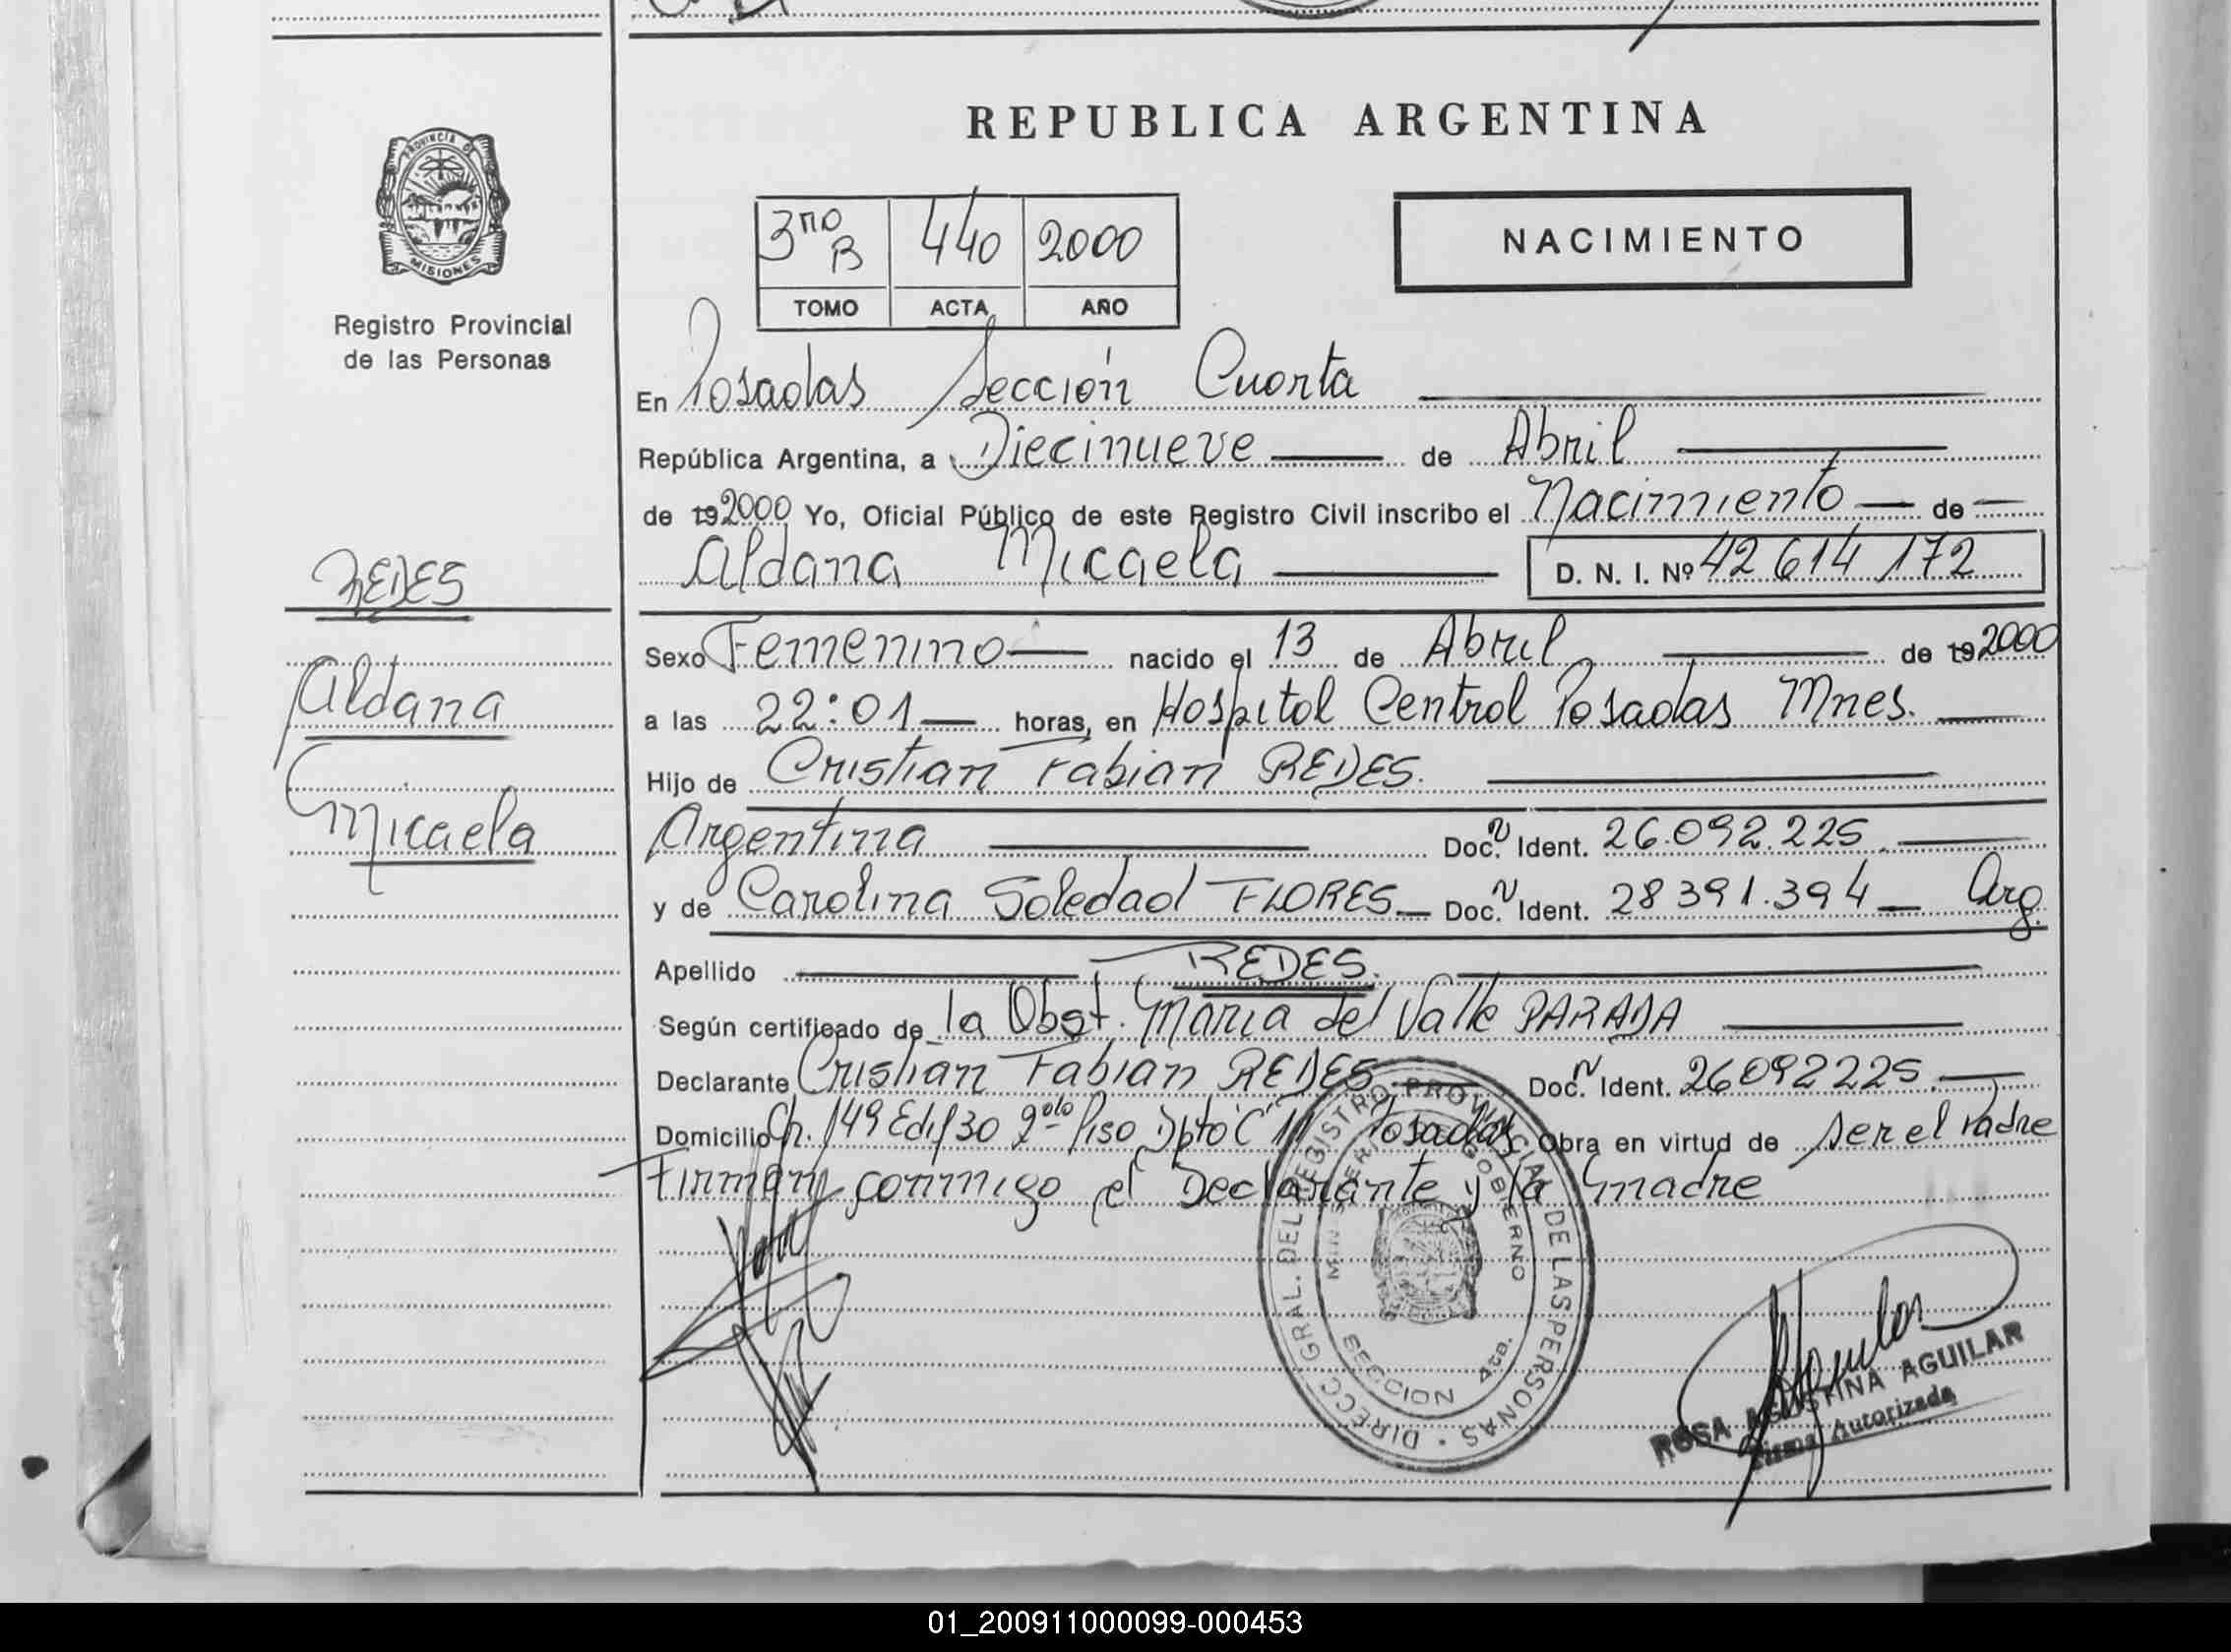 REPUBLICA ARGENTINA
PROVINCIA DE
MISIONES
Registro Provincial
de las Personas
3ro B 440 2000
TOMO ACTA AÑO
NACIMIENTO
En Posadas Sección Cuarta
República Argentina, a Diecinueve de Abril
de 192000 Yo, Oficial Público de este Registro Civil inscribo el Nacimiento de
Aldana Micaela D. N. I. Nº 42 614 172
REDES
Aldana
Micaela
Sexo Femenino nacido el 13 de Abril de 192000
a las 22:01 horas, en Hospital Central Posadas Mnes.
Hijo de Cristian Fabian REDES.
Argentina Doc. N Ident. 26.092.225
y de Carolina Soledad FLORES Doc. N Ident. 28 391.394 Arg.
Apellido REDES.
Según certificado de la Obst. Maria del Valle PARADA
Declarante Cristian Fabian REDES Doc. N Ident. 26092225.
Domicilio Ch. 149 Edif 30 2do Piso Dpto "C" Posadas Obra en virtud de ser el Padre
Firman conmigo el Declarante y la madre
DIRECC. GRAL. DEL REGISTRO PROVINCIAL DE LAS PERSONAS
MINISTERIO DE GOBIERNO
SECCION 4ta.
ROSA AGUSTINA AGUILAR
Firma Autorizada
01_200911000099-000453